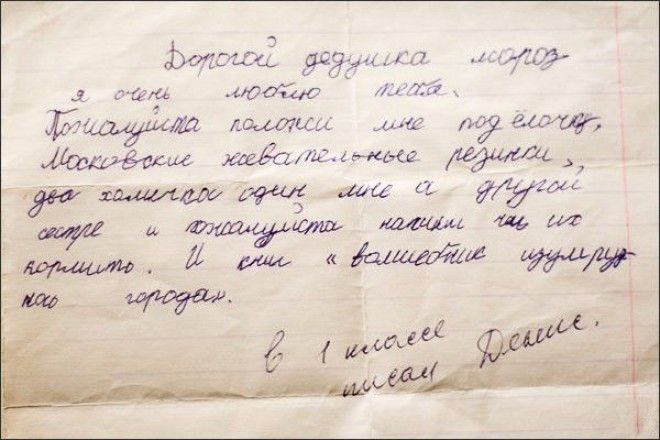 Дорогой дедушка мороз
я очень люблю тебя.
Пожалуйста положи мне под ёлочку,
Московские жевательные резинки,
два хомичка один мне а другой
сестре и пожалуйста напиши чем их
кормить. И книгу "волшебник изумруд
ного города".
в 1 классе
писал Денис.